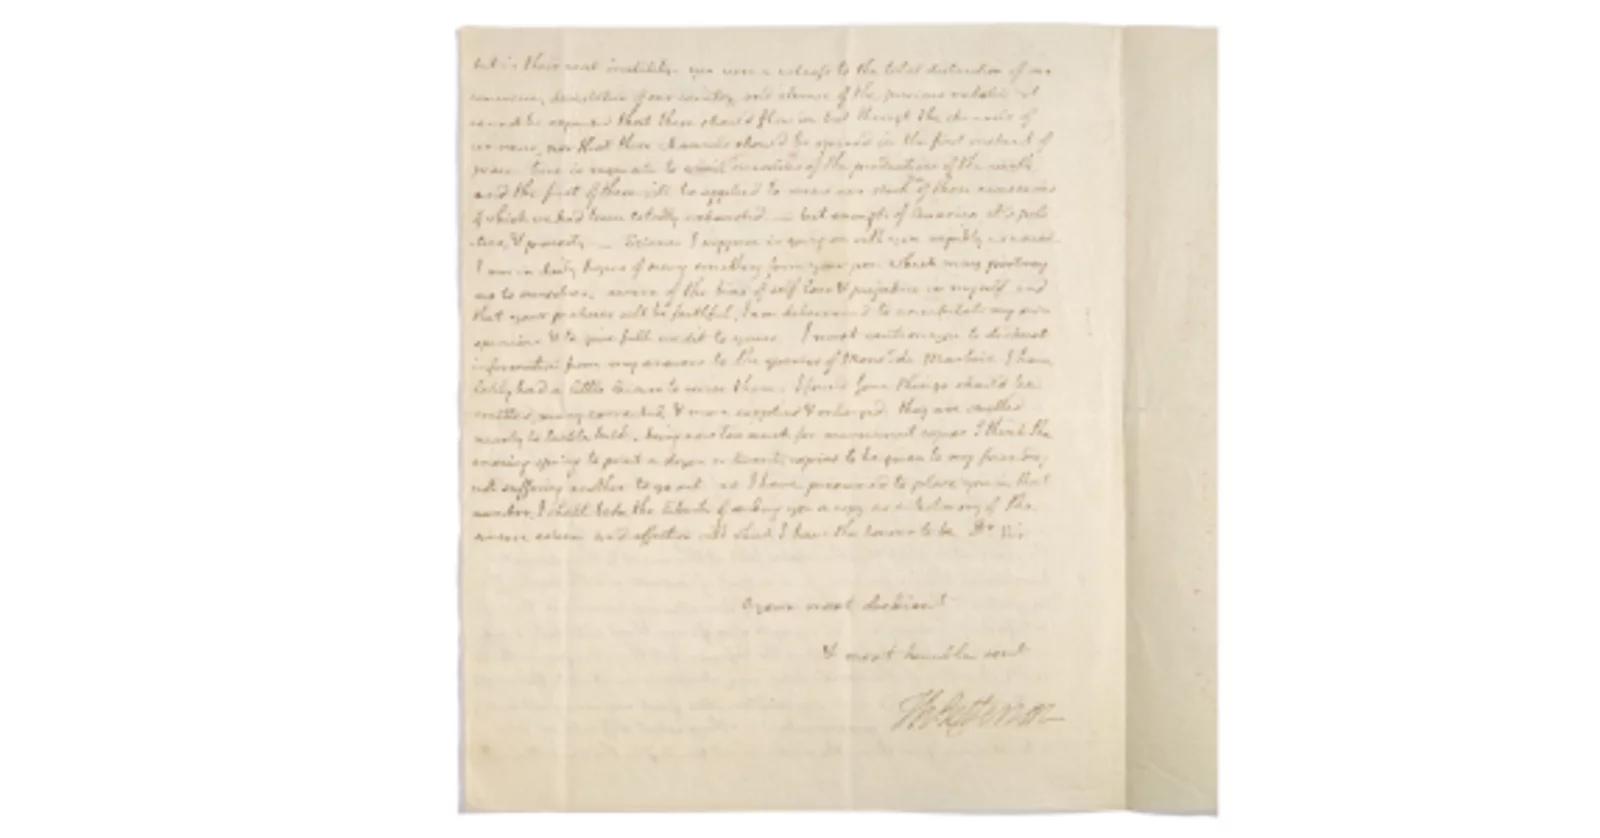 to the total destruction of our
of our country, and absence of the precious metals. it
cannot be expected that these should flow in but through the channels of
commerce, nor that these channels should be opened in the first instant of
peace. time is requisite to the productions of the earth,
and the first of them will be applied to renew our stock of those necessaries
of which we had been totally exhausted. — but enough of America it's poli
-tics, & poverty. — Science I suppose is going on with you rapidly as usual.
I am in daily hopes of seeing something from your pen which may portray
us to ourselves. aware of the bias of self love & prejudice in myself and
that your pictures will be faithful, I am determined to my own
opinions & to give full credit to yours. I must caution you to distrust
information from my answers to the queries of Mons^r. de Marbois. I have
lately had a little leisure to revise them. I found some things should be
omitted, many corrected, & more supplied & enlarged. they are swelled
nearly to treble bulk. being now too much for manuscript copies I think the
ensuing spring to print a dozen or twenty copies to be given to my friends,
not suffering another to go out. as I have presumed to place you in that
number, I shall take the liberty of sending you a copy as a testimony of the
sincere esteem and affection with which I have the honour to be D^r Sir
your most obedient
& most humble serv^t
Th: Jefferson